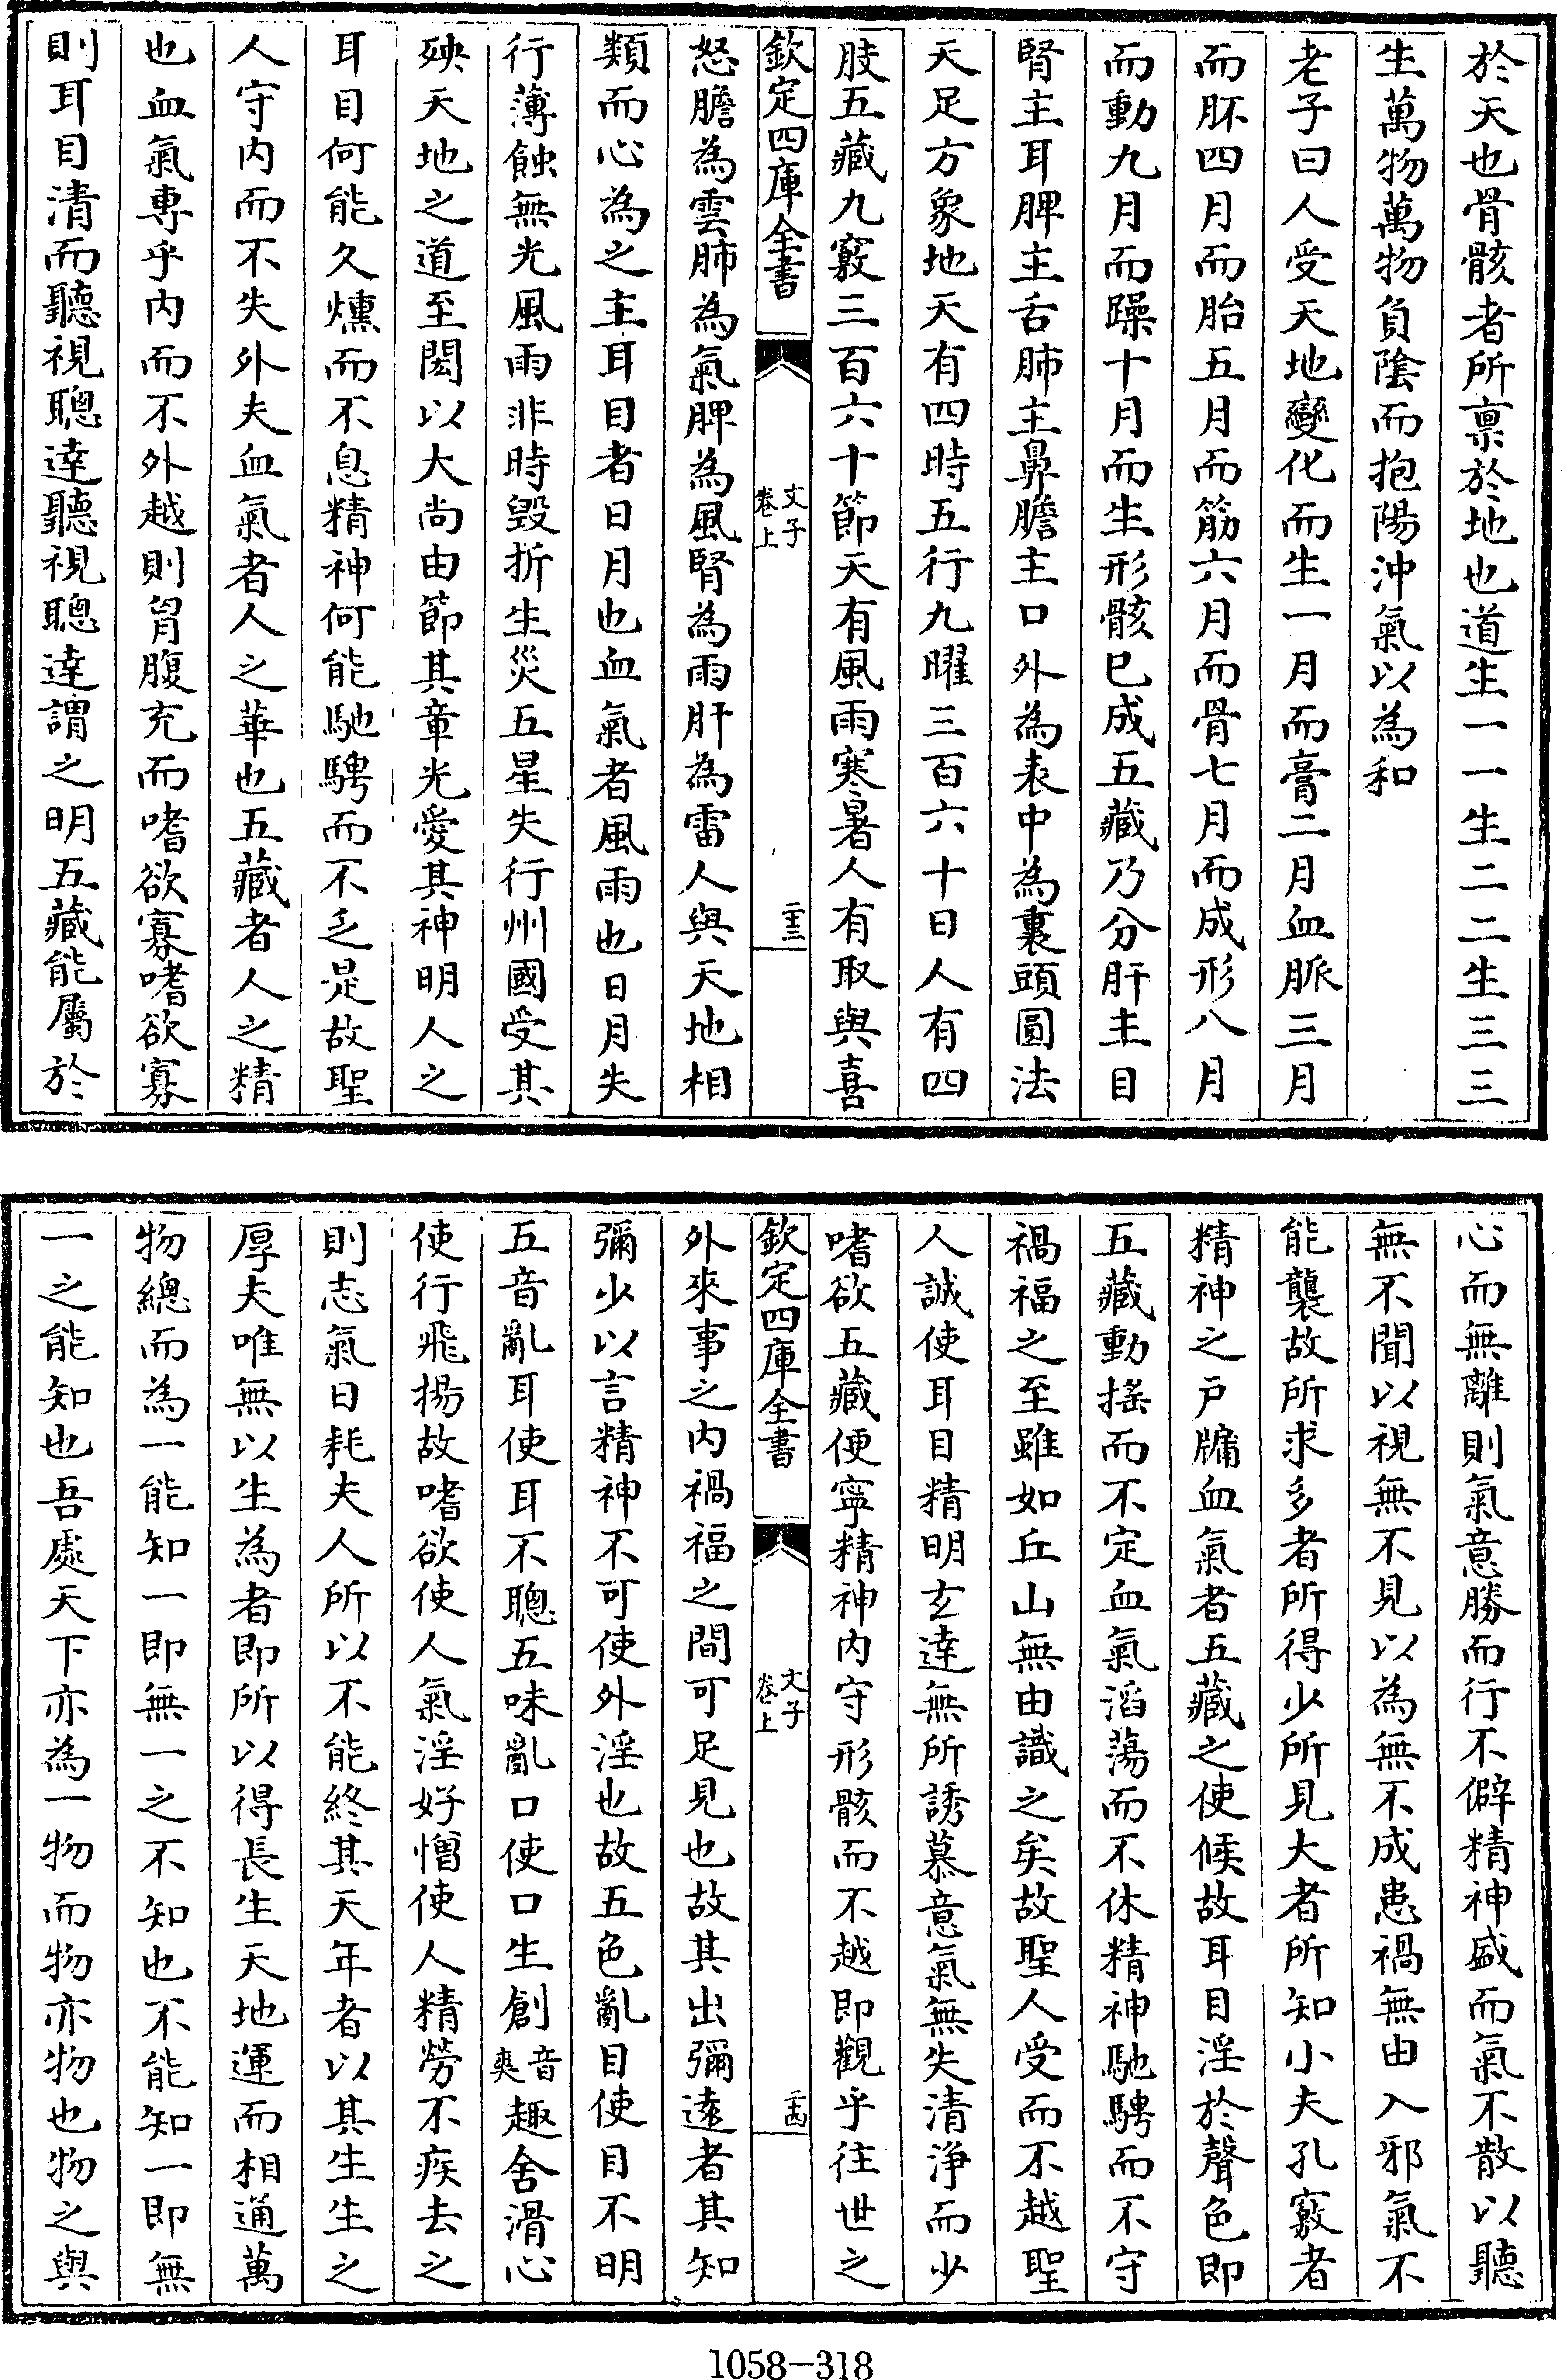 於天也骨骸者所禀於地也道生一一生二二生三三
生萬物萬物負陰而抱陽沖氣以為和
老子曰人受天地變化而生一月而膏二月血脈三月
而胚四月而胎五月而筋六月而骨七月而成形八月
而動九月而躁十月而生形骸已成五藏乃分肝主目
腎主耳脾主舌肺主鼻膽主口外為表中為裏頭圓法
天足方象地天有四時五行九曜三百六十日人有四
肢五藏九竅三百六十節天有風雨寒暑人有取與喜
欽定四庫全書
文子
卷上
二十三
怒膽為雲肺為氣脾為風腎為雨肝為雷人與天地相
類而心為之主耳目者日月也血氣者風雨也日月失
行薄蝕無光風雨非時毀折生災五星失行州國受其
殃天地之道至閎以大尚由節其章光愛其神明人之
耳目何能久燻而不息精神何能馳騁而不乏是故聖
人守内而不失外夫血氣者人之華也五藏者人之精
也血氣專乎内而不外越則胷腹充而嗜欲寡嗜欲寡
則耳目清而聽視聰達聽視聰達謂之明五藏能屬於
心而無離則氣意勝而行不僻精神盛而氣不散以聽
無不聞以視無不見以為無不成患禍無由入邪氣不
能襲故所求多者所得少所見大者所知小夫孔竅者
精神之户牖血氣者五藏之使候故耳目淫於聲色即
五藏動摇而不定血氣滔蕩而不休精神馳騁而不守
禍福之至雖如丘山無由識之矣故聖人受而不越聖
人誠使耳目精明玄達無所誘慕意氣無失清浄而少
嗜欲五藏便寧精神内守形骸而不越即觀乎往世之
欽定四庫全書
文子
卷上
二十四
外來事之内禍福之間可足見也故其出彌遠者其知
彌少以言精神不可使外淫也故五色亂目使目不明
五音亂耳使耳不聰五味亂口使口生創音爽趣舍滑心
使行飛揚故嗜欲使人氣淫好憎使人精勞不疾去之
則志氣日耗夫人所以不能終其天年者以其生生之
厚夫唯無以生為者即所以得長生天地運而相通萬
物總而為一能知一即無一之不知也不能知一即無
一之能知也吾處天下亦為一物而物亦物也物之與
1058-318